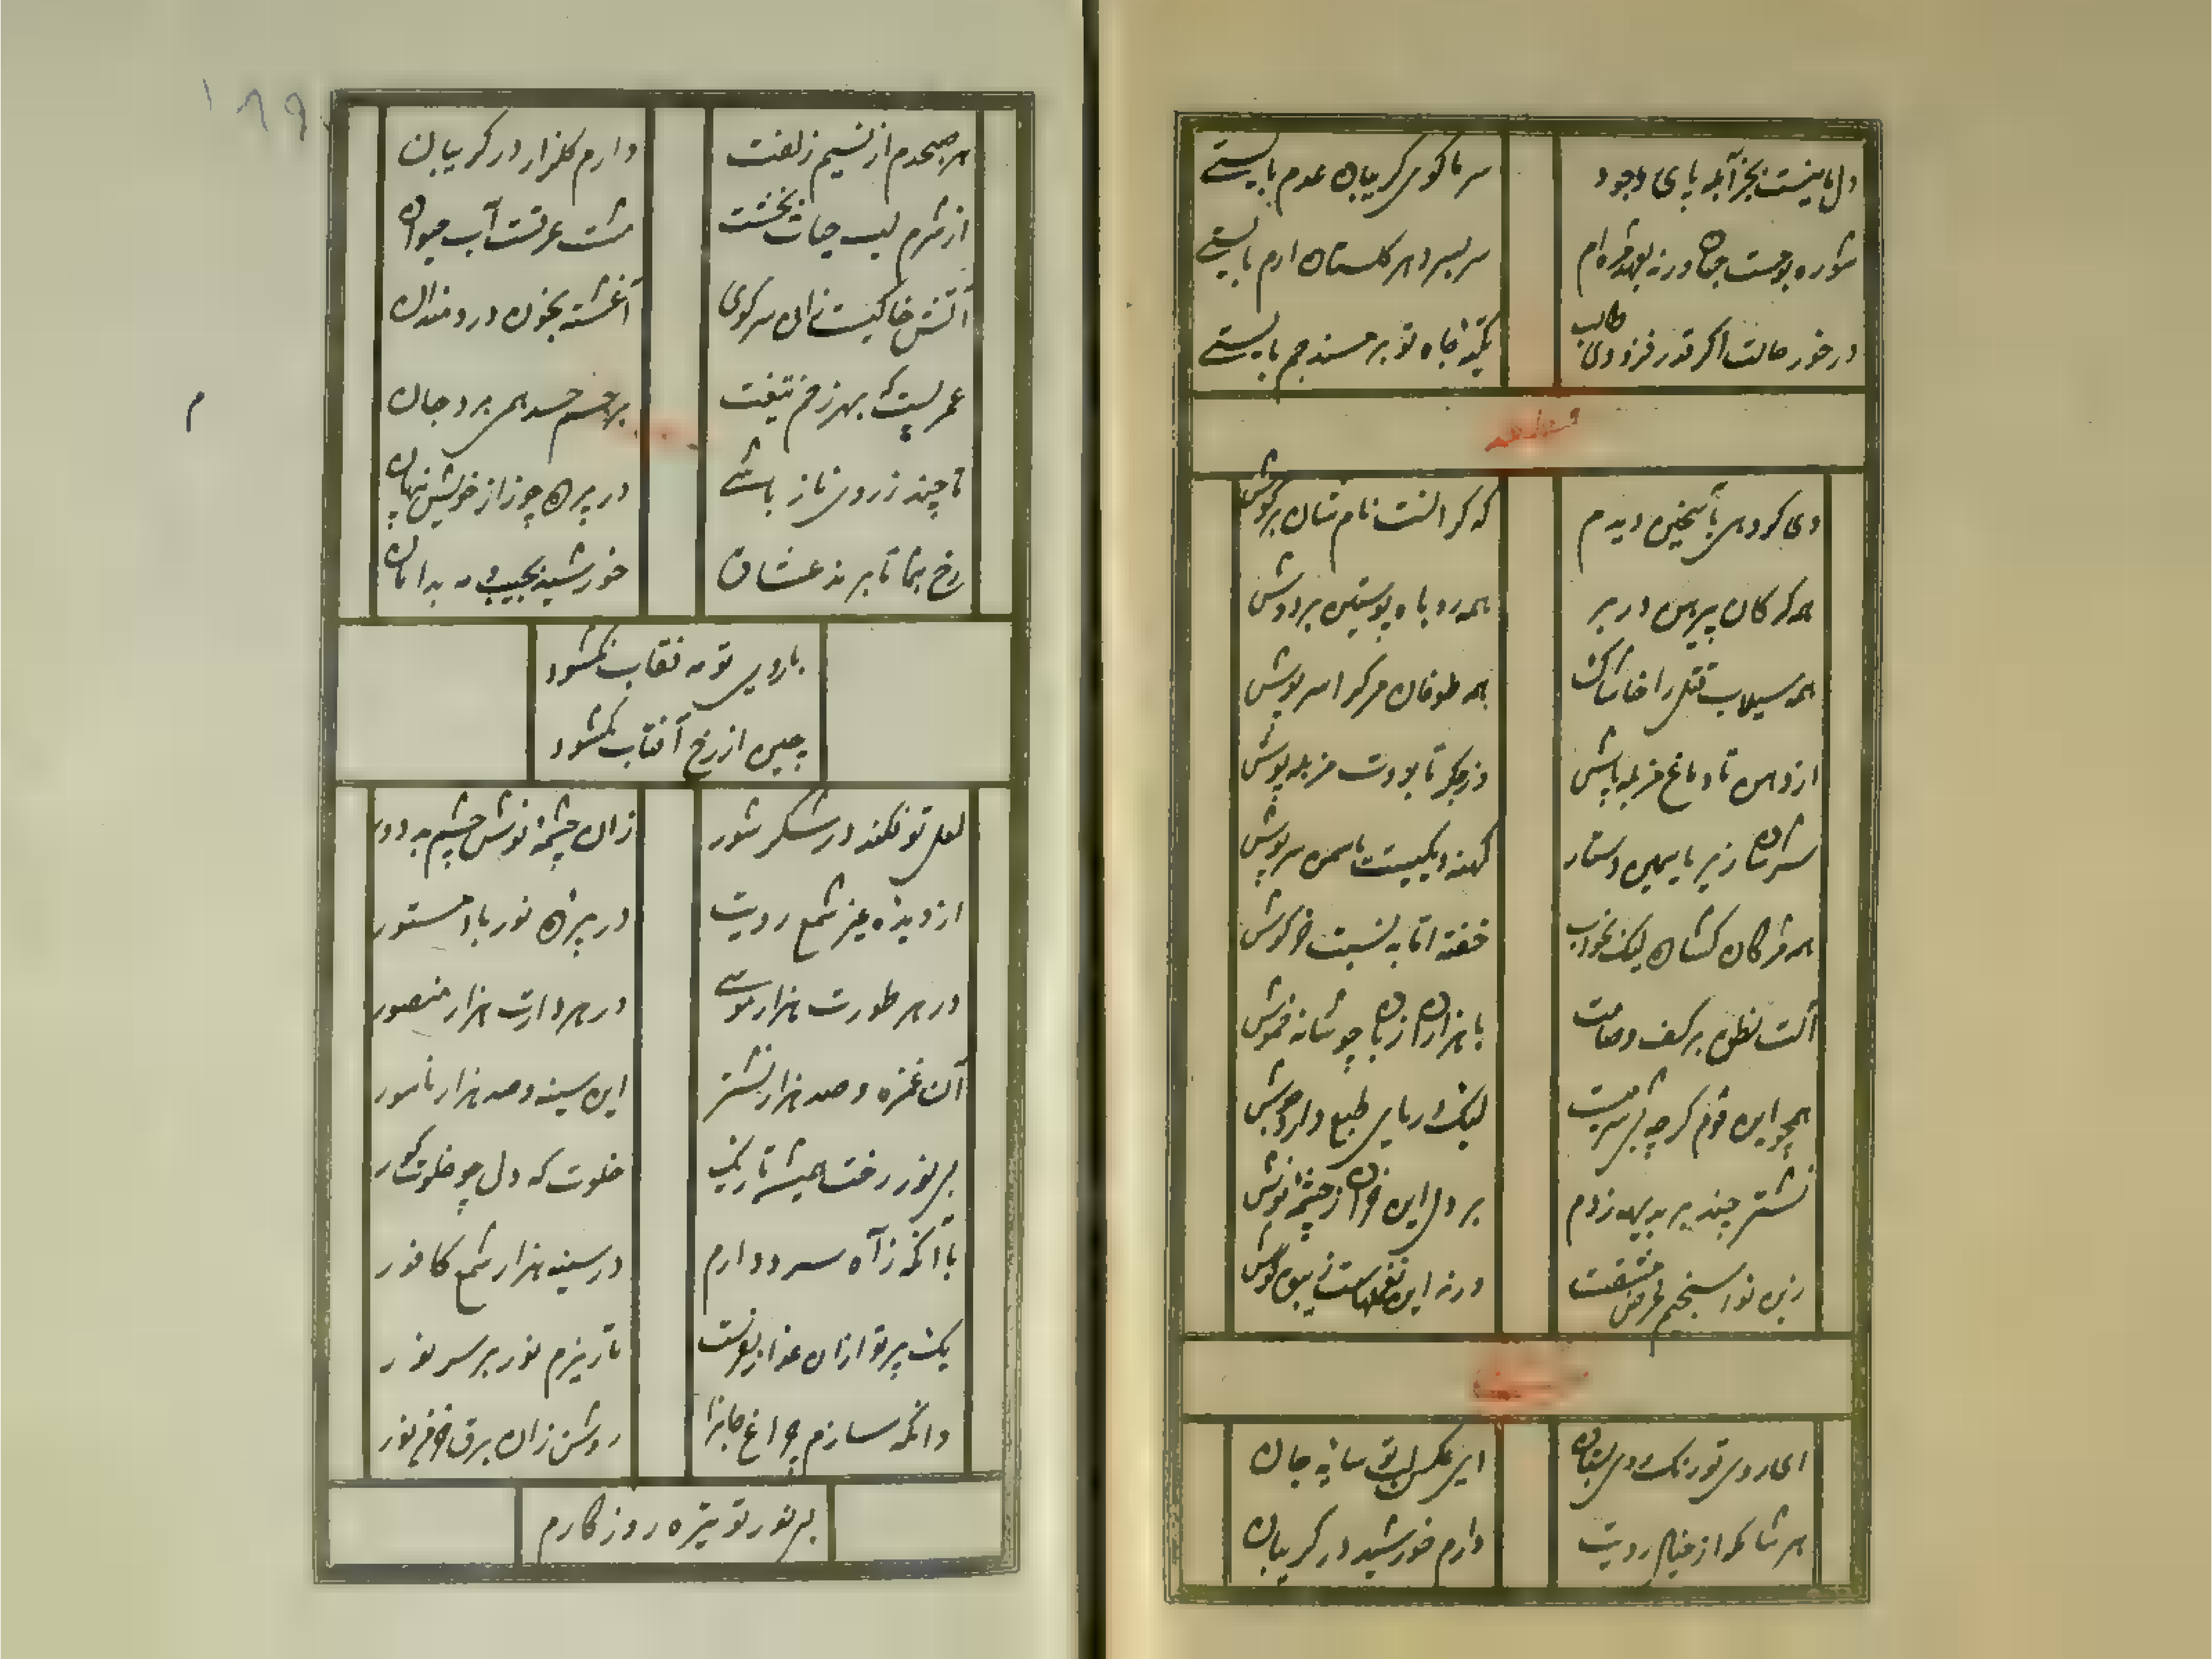 دل ما نیست بجز آبله پای وجود
سر ما کوی گریبان عدم بایستی
شوره بومست جهان ورنه بعهد مژه‌ام
سربسر دهر گلستان ارم بایستی
در خور حالت اگر قدر فزودی طالب
تکیه جاه تو بر مسند جم بایستی
قطعه
دی گروهی باین دیدم
همه گرگان پیرهن در بر
همه روباه پوستین بر دوش
همه سیلاب قتل را خاشاک
همه طوفان مرگ را سرپوش
از دهن تا دماغ مزبله پاش
وز جگر تا بروت مزبله پوش
سرشان زیر بایمین دستار
کهنه دیکیست سرپوش
همه مژگان گشاده لیک بخواب
خفته اما به نسبت خرگوش
آلت نطق بر کف و صامت
با هزاران زبان چو شانه خموش
همچو این قوم گرچه بی شرمیت
لیک دریای طبع دارد جوش
نشتر چند بر بدیهه زدم
بر دل این خران ز چشمه نوش
زین نوا سنجیم غرض مشقست
ورنه این نغمهاست نی گوش
ای روی تو رنگ روی بستان
ای عکس لب تو سایه جان
هر شام که از خیال رویت
دارم خورشید در گریبان
۱۸۹
هر صبحدم از نسیم زلفت
دارم گلزار در گریبان
از شرم لب حیات بخشت
مشت عرقست آب حیوان
آتش خاکیست زان سر کوی
آغشته بخون دردمندان
عمریست که بهر زخم تیغت
بر جسم حسد همی برد جان
تا چند ز روی ناز باشی
در پرده چو راز خویش پنهان
رخ بنما تا برند عشاق
خورشید بجیب و مه بدامان
با روی تو مه نقاب نگشود
چین از رخ آفتاب نگشود
لعل تو فکند در شکر شور
زان چشمه نوش چشم بد دور
از دیده غیر شمع رویت
در پرده نور باد مستور
در هر طورت هزار موسی
در هر دارت هزار منصور
آن غمزه و صد هزار نشتر
این سینه و صد هزار ناسور
بی نور رخت همیشه تاریک
خلوتکه دل چو خلوت گور
با آنکه ز آه سرد دارم
در سینه هزار شمع کافور
یک پرتو ازان عذار بفرست
تا ریزم نور بر سر نور
وانگه سازم چراغ جانرا
روشن زان برق خرمن نور
بی نور تو تیره روزگارم